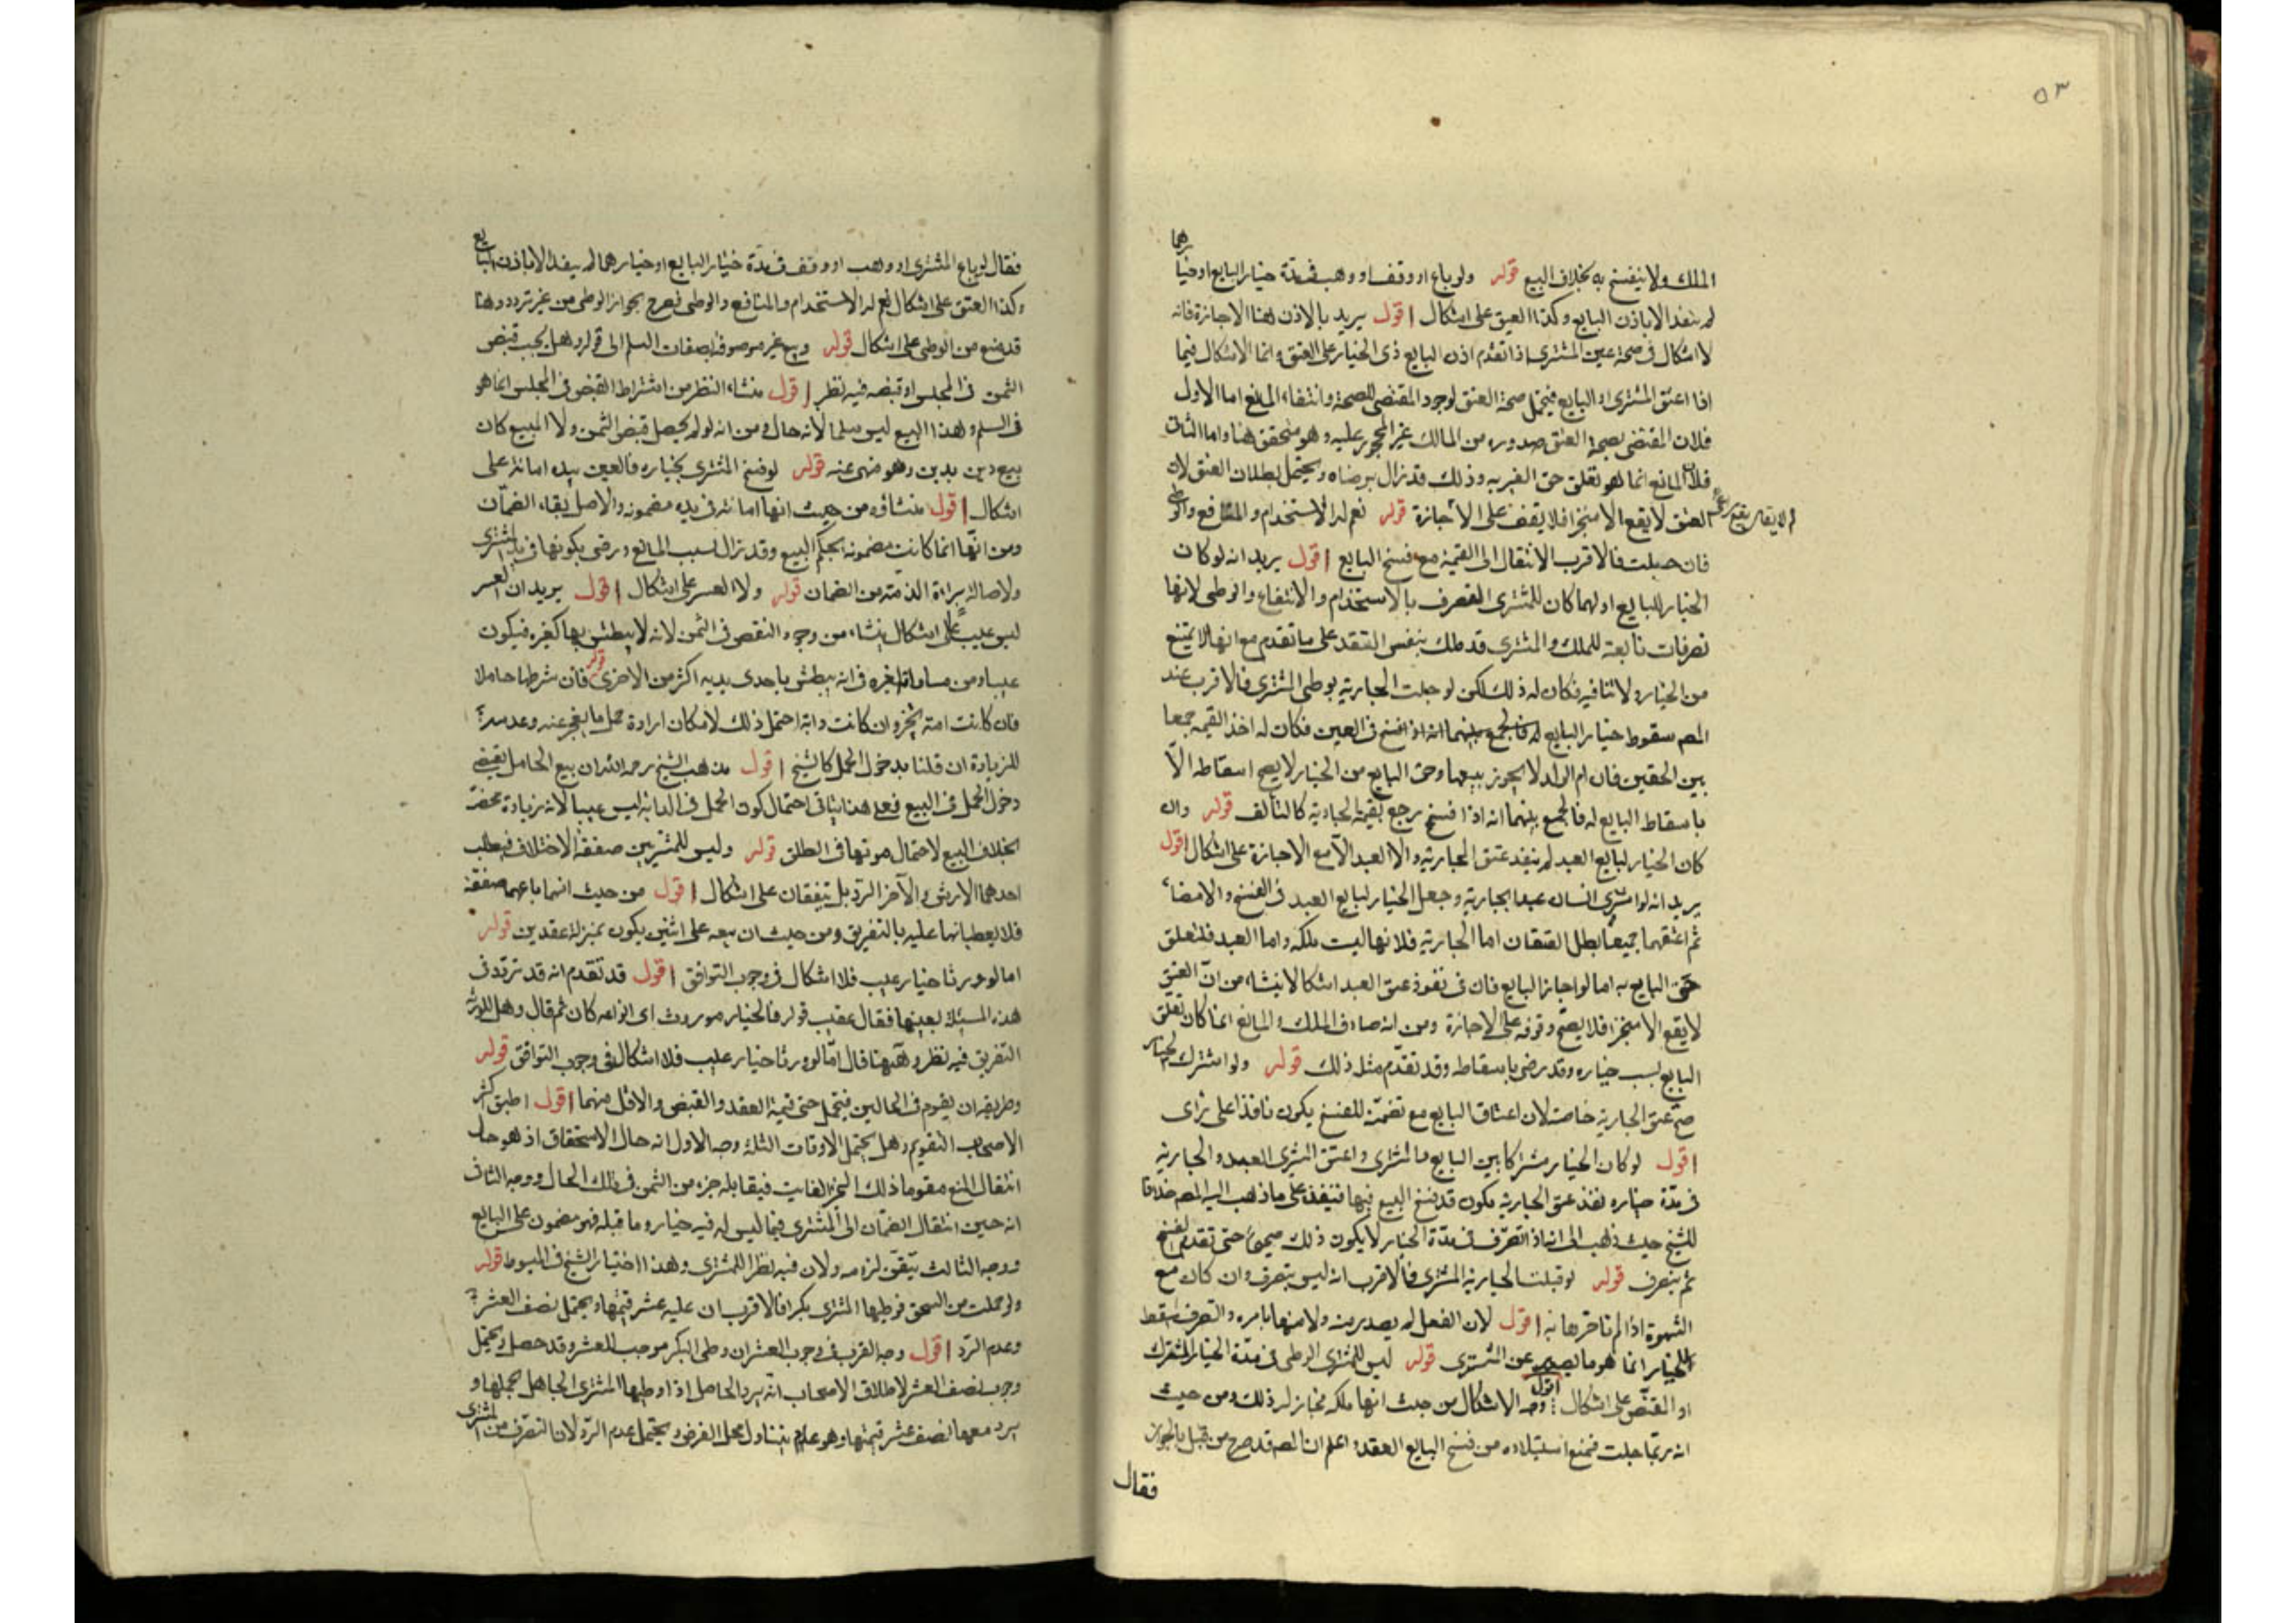 ٥٣
الملك ولا ينفسخ به بخلاف البيع قوله ولو باع او وقف او وهب في مدة خيار البايع او خيارهما
لم ينفذ الا باذن البايع وكذا العتق على اشكال اقول يريد بالاذن هنا الاجازة فانه
لا اشكال في صحة عتق المشتري اذا تقدم اذن البايع ذي الخيار على العتق وانما الاشكال فيما
اذا اعتق المشتري او البايع فيحتمل صحة العتق لوجود المقتضي للصحة وانتفاء المانع اما الاول
فلان المقتضي لصحة العتق صدوره من المالك غير المحجور عليه وهو متحقق هنا واما الثاني
فلان المانع انما هو تعلق حق الغير به وذلك قد زال برضاه ويحتمل بطلان العتق لان
العتق لا يقع الا منجزا فلا يقف على الاجازة قوله نعم له الاستخدام والمنافع والوطي
فان حبلت فالاقرب الانتقال الى القيمة مع فسخ البايع اقول يريد انه لو كان
الخيار للبايع او لهما كان للمشتري التصرف بالاستخدام والانتفاع والوطي لانها
تصرفات تابعة للملك والمشتري قد ملك بنفس العقد على ما تقدم مع انها لا تمنع
من الخيار ولا تنافيه فكان له ذلك لكن لو حبلت الجارية بوطي المشتري فالاقرب عند
المصم سقوط خيار البايع له فالجمع بينهما انه اذا فسخ في العين فكان له اخذ القيمة جمعا
بين الحقين فان ام الولد لا يجوز بيعها وحق البايع من الخيار لا يصح اسقاطه الا
باسقاط البايع له فالجمع بينهما انه اذا فسخ يرجع بقيمة الجارية كالتالف قوله وان
كان الخيار لبايع العبد لم ينفذ عتق الجارية ولا العبد الا مع الاجازة على اشكال اقول
يريد انه لو اشترى انسان عبدا بجارية وجعل الخيار لبايع العبد في الفسخ والامضاء
ثم اعتقهما جميعا بطل العتقان اما الجارية فلانها ليست ملكه واما العبد فلتعلق
حق البايع به اما لو اجاز البايع فان في نفوذ عتق العبد اشكالا ينشاء من ان العتق
لا يقع الا منجزا فلا يصح وقوفه على الاجازة ومن انه صادف الملك والمانع انما كان تعلق
البايع بسبب خياره وقد رضي باسقاطه وقد تقدم مثل ذلك قوله ولو اشترك الخيار
صح عتق الجارية خاصة لان اعتاق البايع مع تضمنه للفسخ يكون نافذا على رأى
اقول لو كان الخيار مشتركا بين البايع والمشتري واعتق المشتري العبد والجارية
في مدة خياره نفذ عتق الجارية يكون قد فسخ البيع فيها فينفذ على ما ذهب اليه المصم خلافا
للشيخ حيث ذهب الى انه اذا تصرف في مدة الخيار لا يكون ذلك صحيحا حتى تقدم الفسخ
ثم يتصرف قوله لو قبلت الجارية المشتري فالاقرب انه ليس بتصرف وان كان مع
الشهوة اذا لم تأمرها به اقول لان الفعل لم يصدر منه ولا منها بامره والتصرف المسقط
للخيار انما هو ما يصدر عن المشتري قوله ليس للمشتري الوطي في مدة الخيار المشترك
او المختص على اشكال اقول وجه الاشكال من حيث انها ملكه فجاز له ذلك ومن حيث
انه ربما حبلت فمنع استيلاده من فسخ البايع العقد واعلم ان المصم قد صرح من قبل بالجواز
فقال
فقال لو باع المشتري او وهب او وقف في مدة خيار البايع او خيارهما لم ينفذ الا باذن البايع
وكذا العتق على اشكال نعم له الاستخدام والمنافع والوطي فصرح بجواز الوطي من غير تردد وهنا
قد منع من الوطي على اشكال قوله وبيع غير موصوف بصفات السلم الى قوله وهل يجب قبض
الثمن في المجلس او قبضه فيه نظر اقول منشاء النظر من اشتراط القبض في المجلس انما هو
في السلم وهذا البيع ليس سلما لانه حال ومن انه لو لم يحصل قبض الثمن ولا المبيع كان
بيع دين بدين وهو منهي عنه قوله لو فسخ المشتري بخياره فالعين بيده امانة على
اشكال اقول منشاؤه من حيث انها امانة في يده مضمونة والاصل بقاء الضمان
ومن انها انما كانت مضمونة بحكم البيع وقد زال بسبب المانع ورضى بكونها في يد المشتري
ولاصالة براءة الذمة من الضمان قوله ولا العسر على اشكال اقول يريد ان العسر
ليس عيبا على اشكال ينشاء من وجود النقص في الثمن لانه لا يبطش بها كغيره فيكون
عيبا ومن مساواته لغيره في انه يبطش باحدى يديه اكثر من الاخرى قوله فان شرطها حاملا
فان كانت امة تخير وان كانت دابة احتمل ذلك لامكان ارادة حمل ما يعجز عنه وعدمه
للزيادة ان قلنا بدخول الحمل كالشيخ اقول مذهب الشيخ رحمه الله ان بيع الحامل يقتضي
دخول الحمل في البيع فعلى هذا يتأتى احتمال كون الحمل في الدابة ليس عيبا لانه زيادة محضة
بخلاف البيع لاحتمال موتها في الطلق قوله وليس للمشتريين صفقة الاختلاف فيطلب
احدهما الارش والآخر الرد بل يتفقان على اشكال اقول من حيث انهما باعهما صفقة
فلا يعطيانها عليه بالتفريق ومن حيث ان بيعه على اثنين يكون بمنزلة عقدين قوله
اما لو ورثا خيار عيب فلا اشكال في وجوب التوافق اقول قد تقدم انه قد تردد في
هذه المسئلة بعينها فقال عقيب قوله فالخيار موروث اى انواعه كان ثم قال وهل للورثة
التفريق فيه نظر وههنا قال اما لو ورثا خيار عيب فلا اشكال في وجوب التوافق قوله
وطريقه ان يقوم في الحالين فيحتمل حتى قيمة العقد والقبض والاقل منهما اقول اطبق اكثر
الاصحاب التقويم وهل يحتمل الاوقات الثلثة وجه الاول انه حال الاستحقاق اذ هو حال
انتقال المبيع مقوما ذلك الجزء الفايت فيقابله جزء من الثمن في تلك الحال ووجه الثاني
انه حين انتقال الضمان الى المشتري فيما ليس له فيه خيار وما قبله فهو مضمون على البايع
ووجه الثالث تيقن لزومه ولان فيه نظرا للمشتري وهذا اختيار الشيخ في المبسوط قوله
ولو حملت من السحق فوطيها المشتري بكرا فالاقرب ان عليه عشر قيمتها ويحتمل نصف العشر
وعدم الرد اقول وجه القرب في وجوب العشر ان وطي البكر موجب للعشر وقد حصل ويحتمل
وجوب نصف العشر لاطلاق الاصحاب انه يرد الحامل اذا وطيها المشتري الجاهل بحملها و
يرد معها نصف عشر قيمتها وهو عام يتناول محل الفرض ويحتمل عدم الرد لان التصرف من المشتري